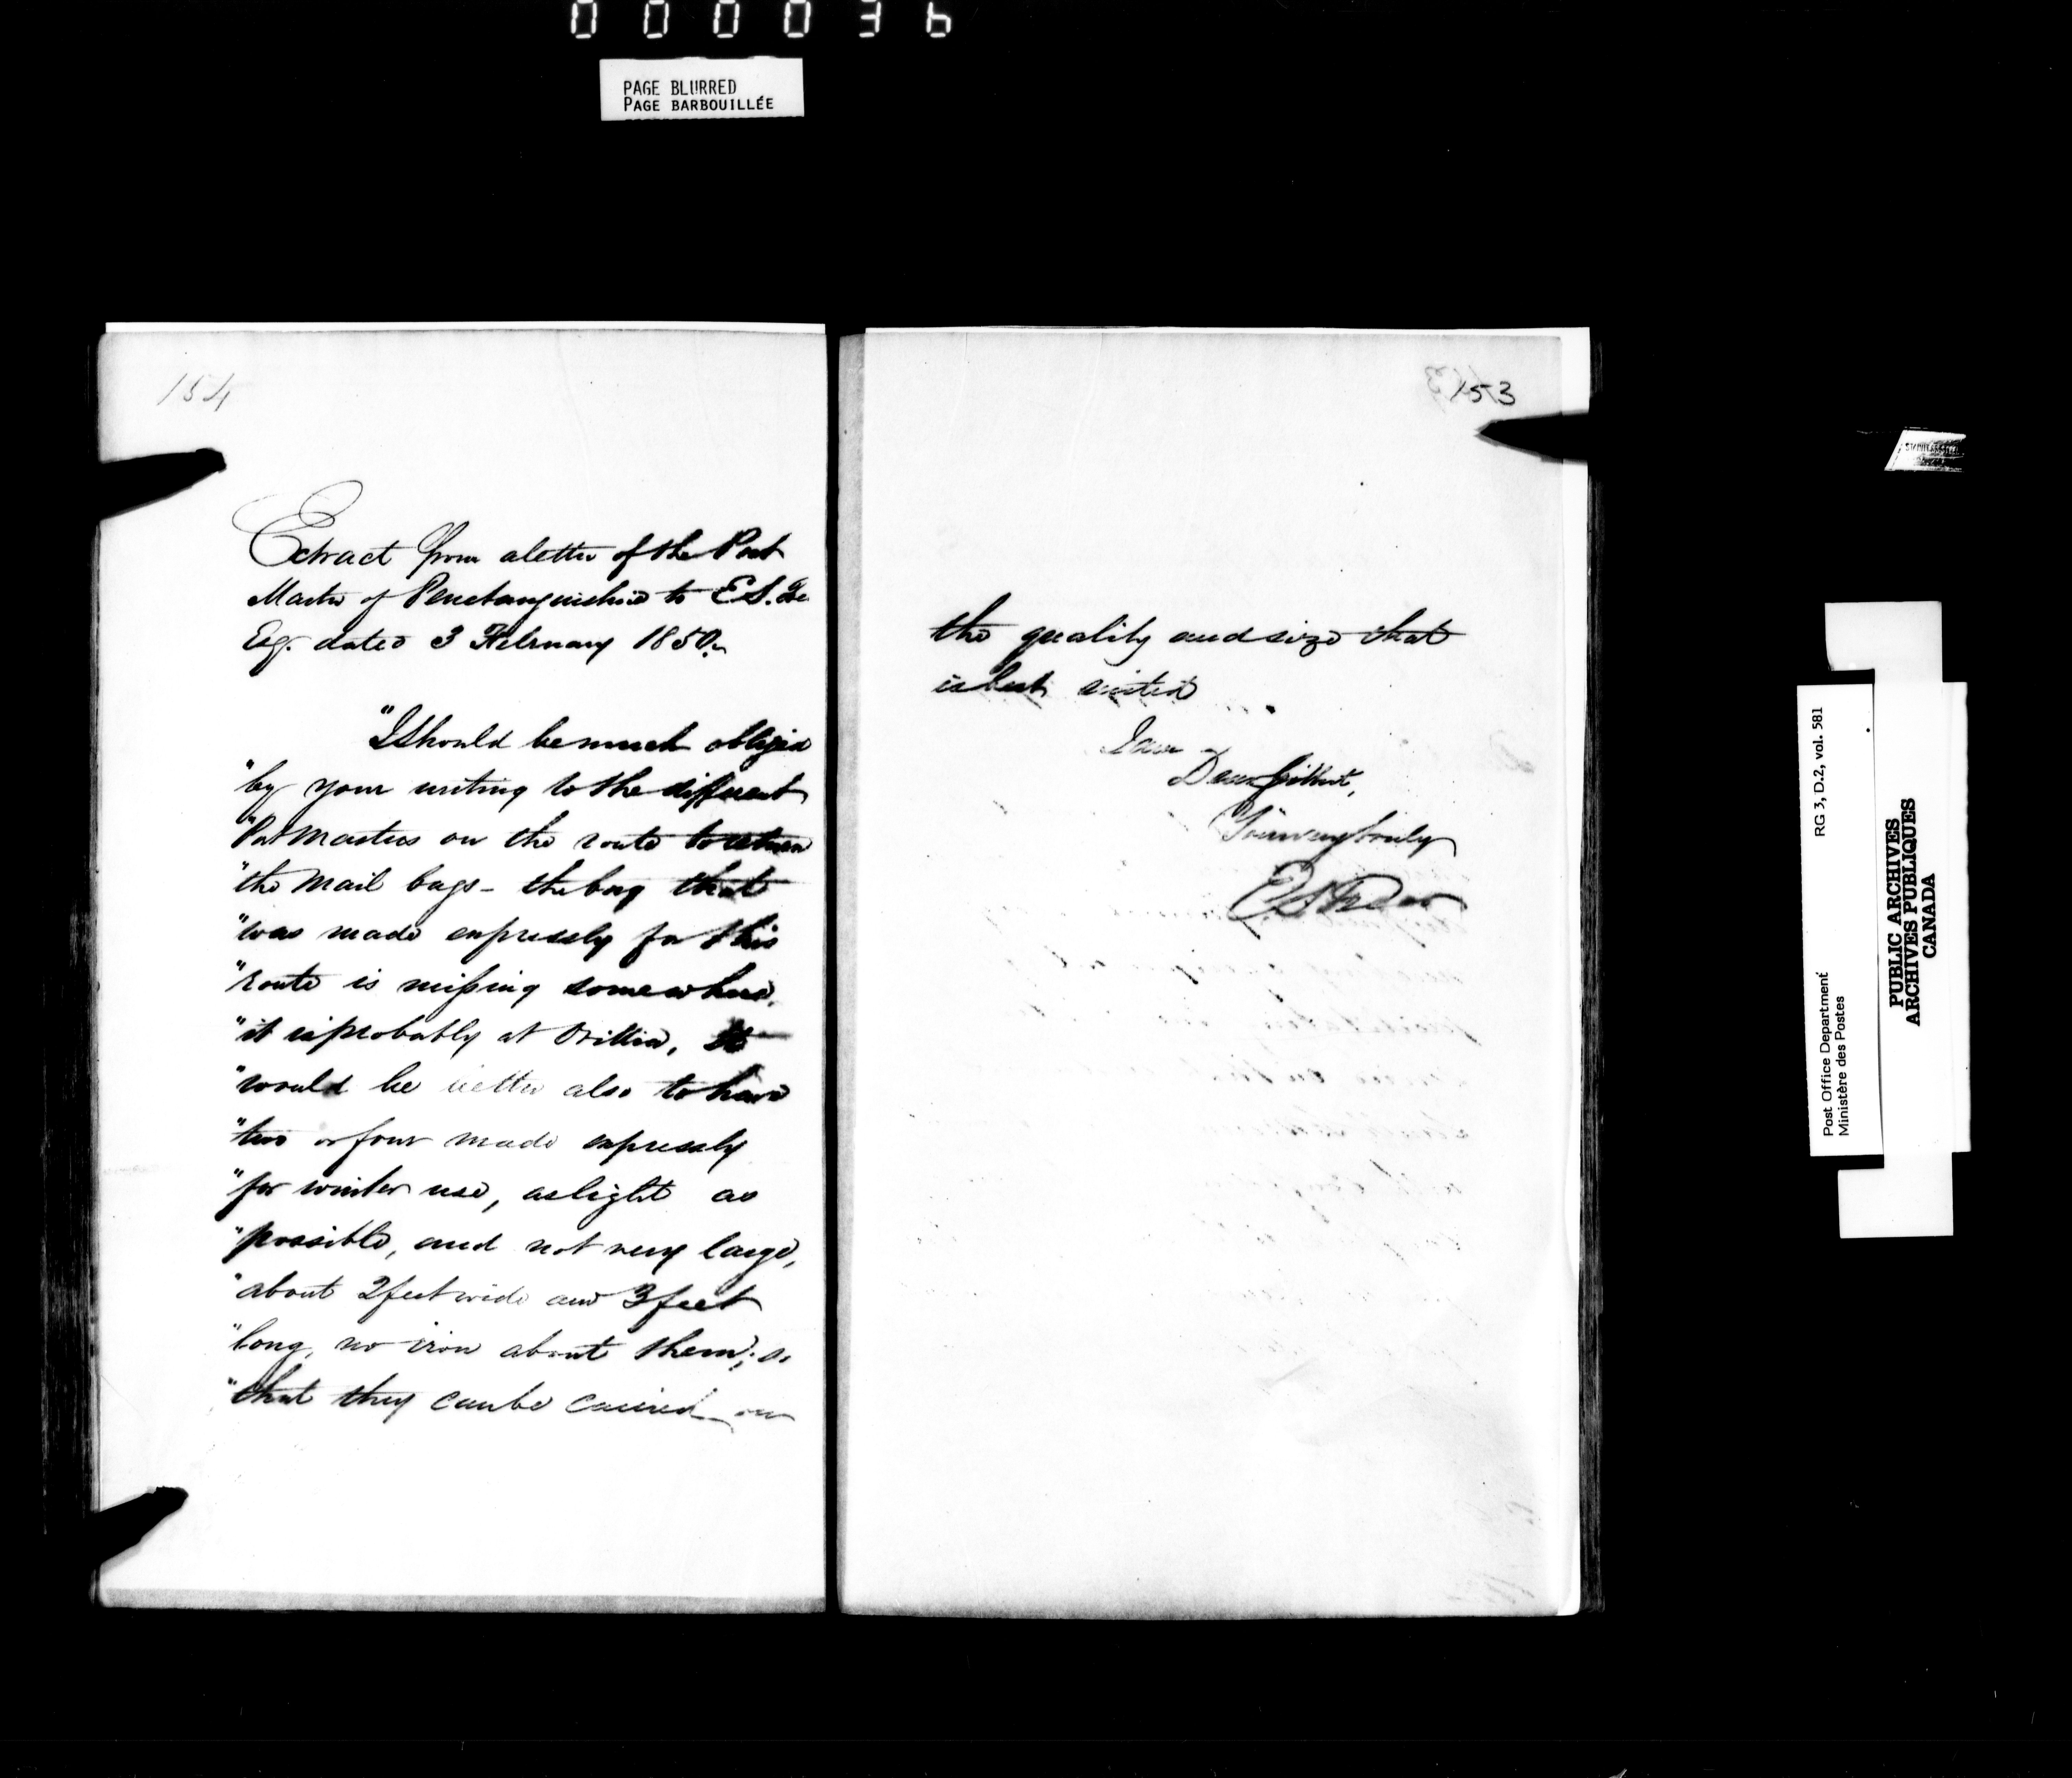 000036
PAGE BLURRED
PAGE BARBOUILLÉE
154
Extract from a letter of the Post
Master of Penetanguishine to E.S.
Esq. dated 3 February 1850.
"I should be much obliged
"by your writing to the different
"Post Masters on the route to return
"the Mail bags - the bag that
"was made expressly for this
"route is missing somewhere,
"it is probably at Orillia, It
"would be better also to have
"two or four made expressly
"for winter use, as light as
"possible, and not very large,
"about 2 feet wide and 3 feet
"long, no iron about them; so
"that they can be carried on
153
the quality and size that
is best suited
I am
Dear
Yours very truly
E.S.
Post Office Department
Ministère des Postes
RG 3, D.2, vol. 581
PUBLIC ARCHIVES
ARCHIVES PUBLIQUES
CANADA